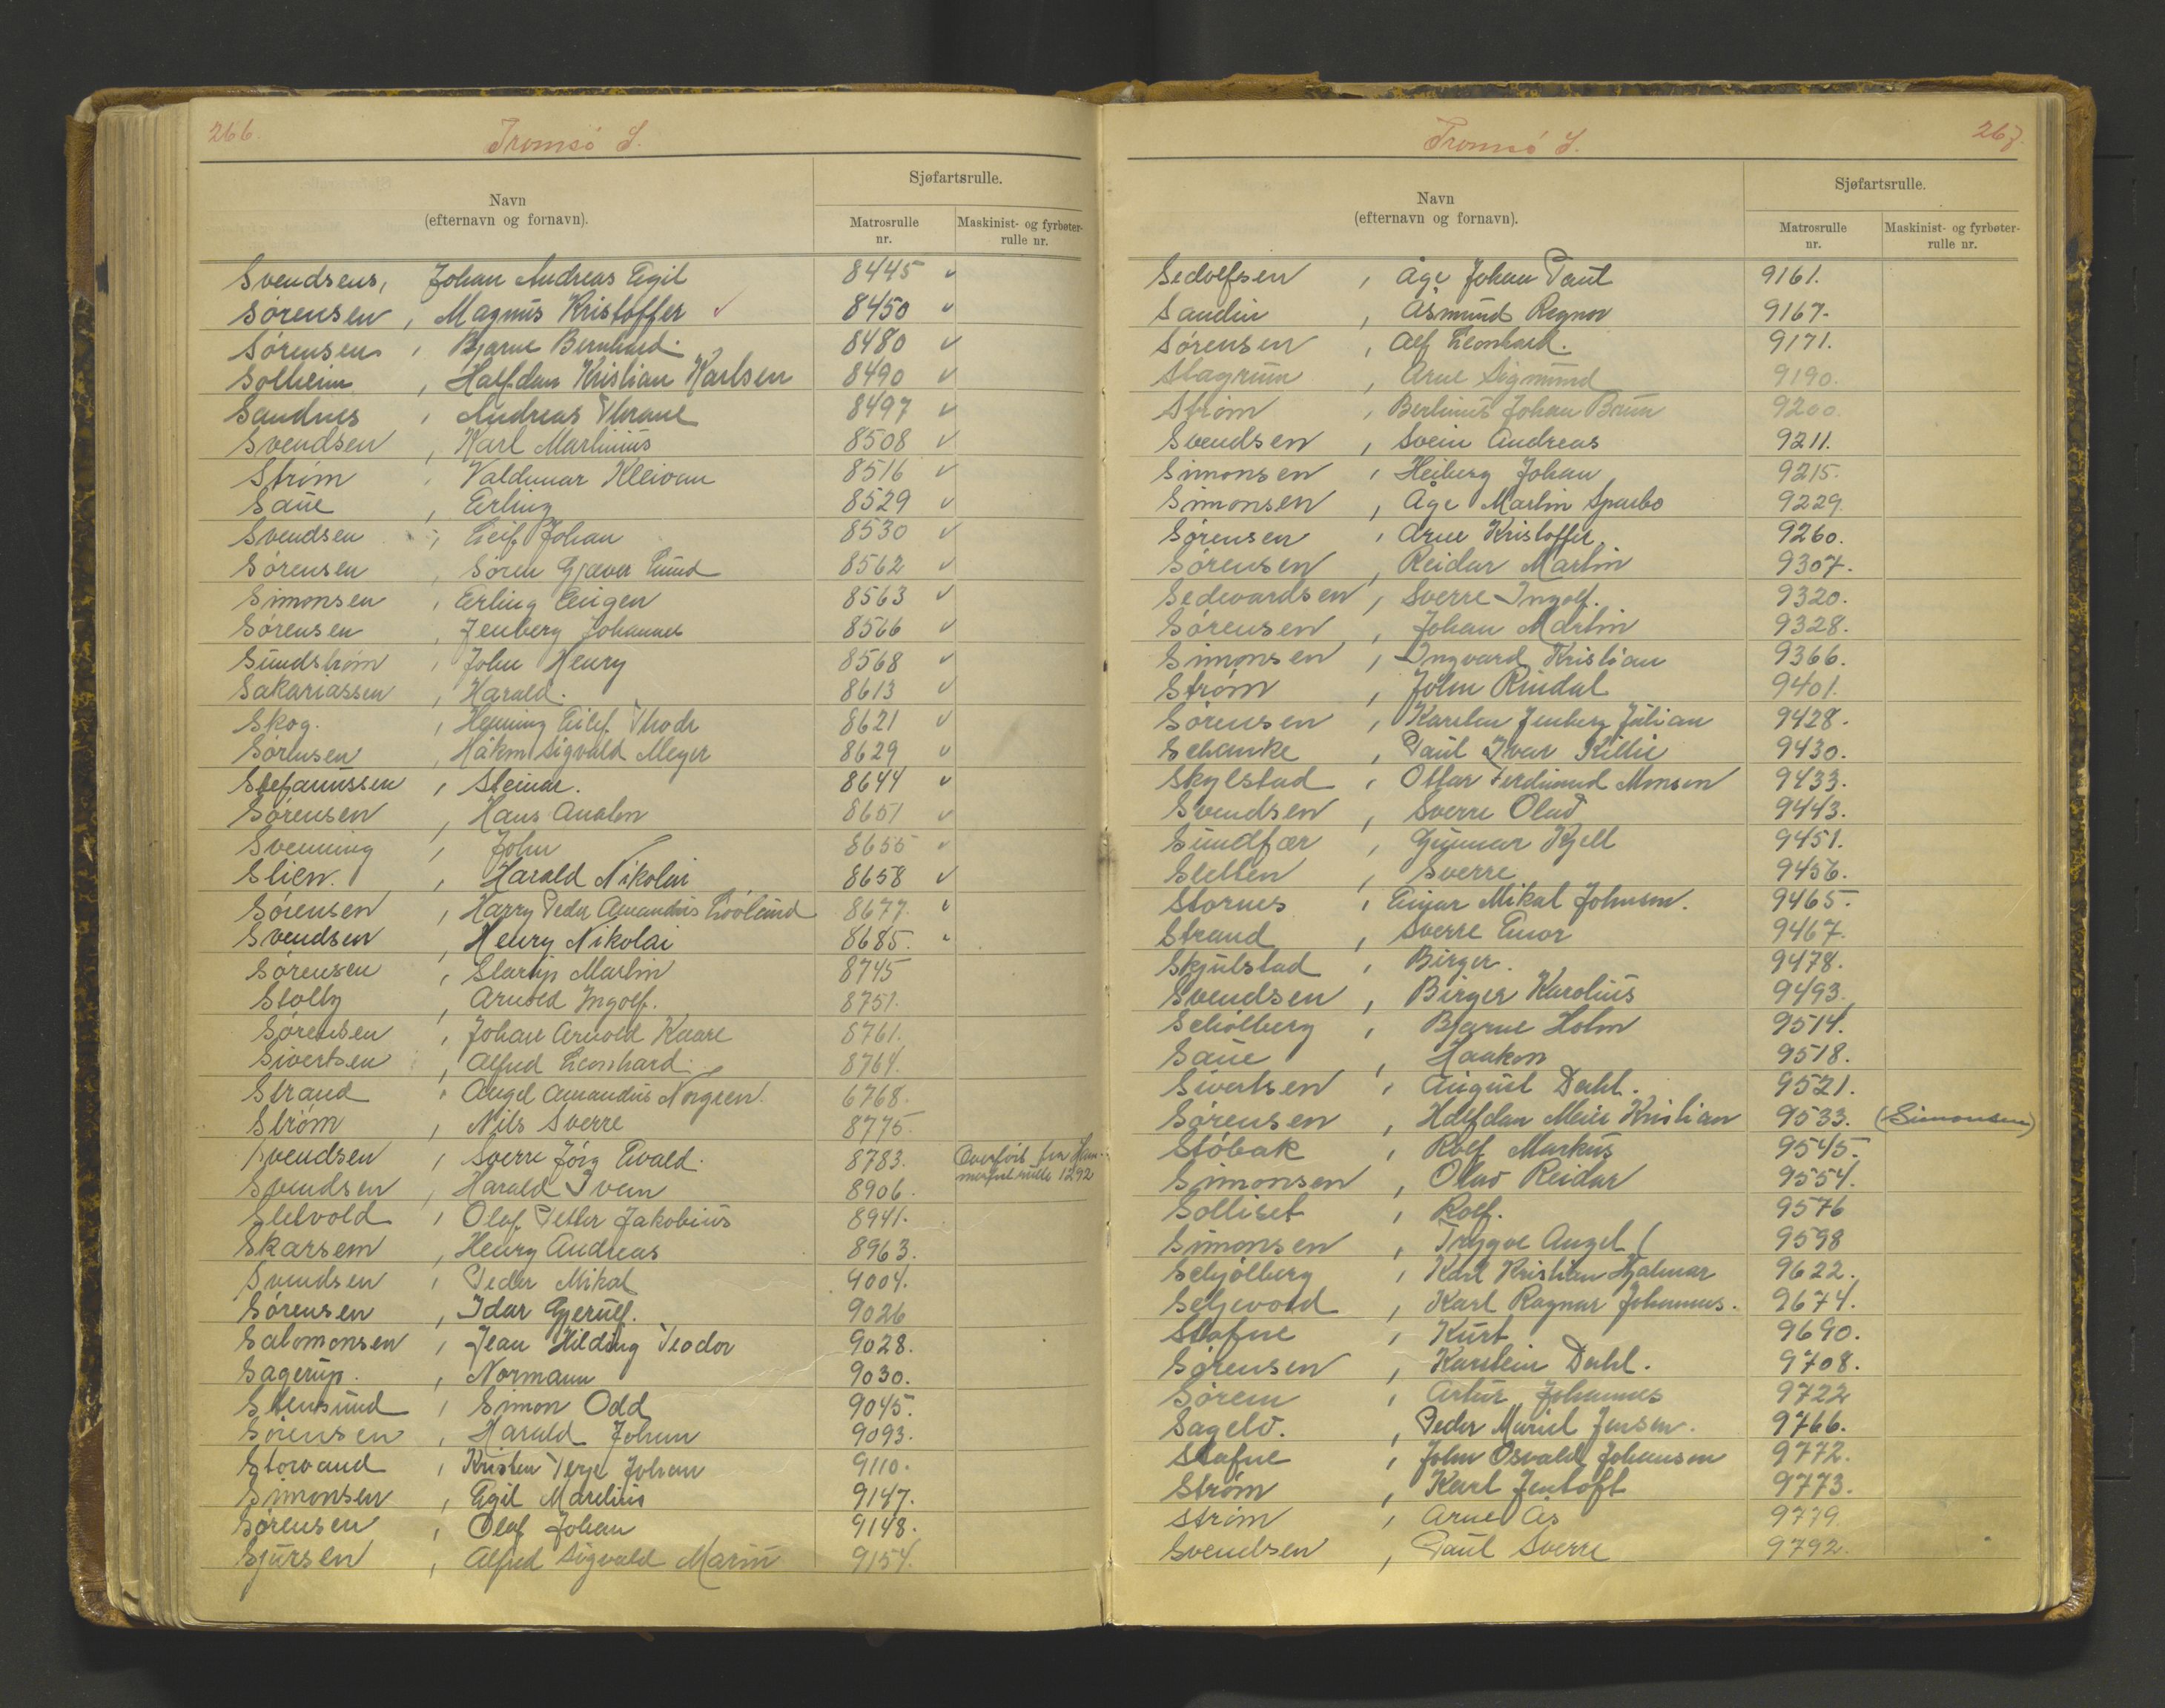 266.
Tromsö S.
Navn
(efternavn og fornavn).
Sjøfartsrulle.
Matrosrulle nr.
Maskinist- og fyrbøter-rulle nr.
Svendsens, Johan Andreas Egil 8445 v
Sörensen, Magnus Kristoffer ✓ 8450 v
Sörensen, Bjarne Bernhard. 8480 v
Solheim, Halfdan Kristian Karlsen 8490 v
Sandnes, Andreas Thrane 8497 v
Svendsen, Karl Martinius 8508 v
Ström, Valdemar Kleivan 8516 v
Saue, Erling 8529 v
Svendsen, Leif Johan 8530 v
Sörensen, Sören Gjæver Lund 8562 v
Simonsen, Erling Eugen 8563 v
Sörensen, Jenberg Johannes 8566 v
Sundström, John Henry 8568 v
Sakariassen, Harald. 8613 v
Skog., Henning Eilef Thode 8621 v
Sörensen, Håkon Sigvald Meyer 8629 v
Stefanussen, Steinar. 8644 v
Sörensen, Hans Analon 8651 v
Svenning, John 8655 v
Slien., Harald Nikolai 8658 v
Sörensen, Harry Peder Amandus Lövlund 8677. v
Svendsen, Henry Nikolai 8685. v
Sörensen, Martin 8745
Stolly, Arnold Ingolf. 8751.
Sörensen, Johan Arnold Kaare 8761.
Sivertsen, Alfred Leonhard. 8764.
Strand, Angel Amandus Norgren. 6768.
Ström, Nils Sverre 8775.
Svendsen, Sverre Jörg Evald. 8783. Overfört fra Ham-
Svendsen, Harald Iven 8906. merfest rulle 1292
Sletvold, Olaf Petter Jakobius 8941.
Skarsem, Henry Andreas 8963.
Svendsen, Peder Mikal 9004.
Sörensen, Idar Gjerulf. 9026
Salomonsen, Jean Hilding Teodor 9028.
Sagerup., Normann 9030.
Stensund, Simon Odd 9045.
Sörensen, Harald Johan 9093.
Storvand, Kristen Terje Johan 9110.
Simonsen, Egil Marelius 9147.
Sörensen, Olaf Johan 9148.
Sjursen, Alfred Sigvald Marin 9154.
267.
Tromsö S.
Navn
(efternavn og fornavn).
Sjøfartsrulle.
Matrosrulle nr.
Maskinist- og fyrbøter-rulle nr.
Sedolfsen, Åge Johan Paul 9161.
Sandin, Åsmund Regnor 9167.
Sörensen, Alf Leonhard. 9171.
Slagrum, Arne Sigmund 9190.
Ström, Berlinus Johan Brun 9200.
Svendsen, Svein Andreas 9211.
Simonsen, Heiberg Johan 9215.
Simonsen, Åge Martin Sparbo 9229.
Sörensen, Arne Kristoffer. 9260.
Sörensen, Reidar Martin 9307.
Sedevardsen, Sverre Ingolf. 9320.
Sörensen, Johan Martin 9328.
Simonsen, Ingvard Kristian 9366.
Ström, John Rindal 9401.
Sörensen, Karsten Jenberg Julian 9428.
Schanke, Paul Ivar Killie 9430.
Skylstad, Ottar Ferdinand Monsen 9433.
Svendsen, Sverre Olav 9443.
Sundfær, Gunnar Kjell 9451.
Sletten, Sverre 9456.
Stornes, Einar Mikal Johnsen. 9465.
Strand, Sverre Einar 9467.
Skjulstad, Birger. 9478.
Svendsen, Birger Karolius 9493.
Schölberg, Bjarne Holm 9514.
Saue, Haakon 9518.
Sivertsen, August Dahl. 9521.
Sörensen, Halfdan Meier Kristian 9533. (Simonsen)
Stöbak, Rolf Markus 9545.
Simonsen, Olav Reidar 9554.
Solliset, Rolf. 9576
Simonsen, Trygve Angel ( 9598
Schjölberg, Karl Kristian Hjalmar 9622.
Seljevold, Karl Ragnar Johannes. 9674.
Stafne, Kurt 9690.
Sörensen, Karstein Dahl. 9708.
Sörem, Artur Johannes 9722
Sagelv., Peder Mariel Jensen. 9766.
Stafne, John Osvald Johansen 9772.
Ström, Karl Jentoft 9773.
Ström, Arne Ås 9779
Svendsen, Paul Sverre 9792.